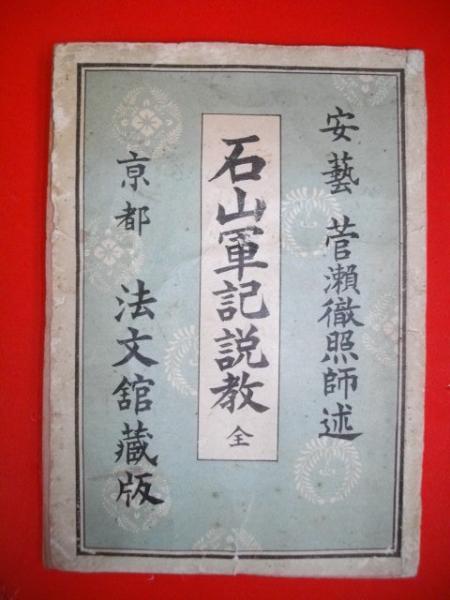 安藝 菅瀬徹照師述
石山軍記説教 全
京都 法文館藏版